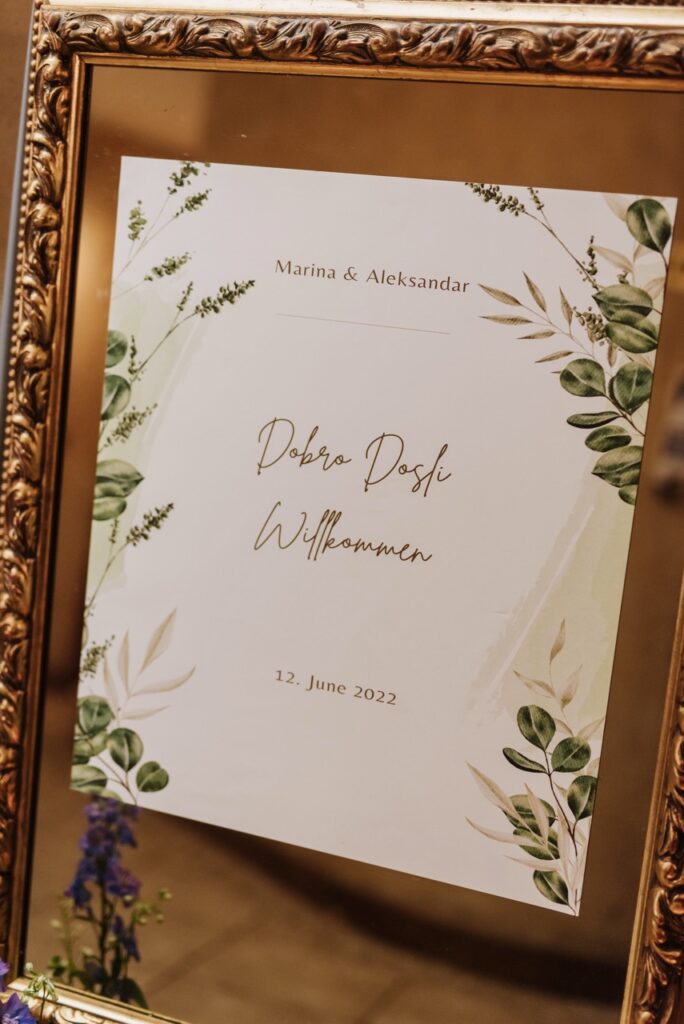 Marina & Aleksandar
Dobro Dosli
Willkommen
12. June 2022